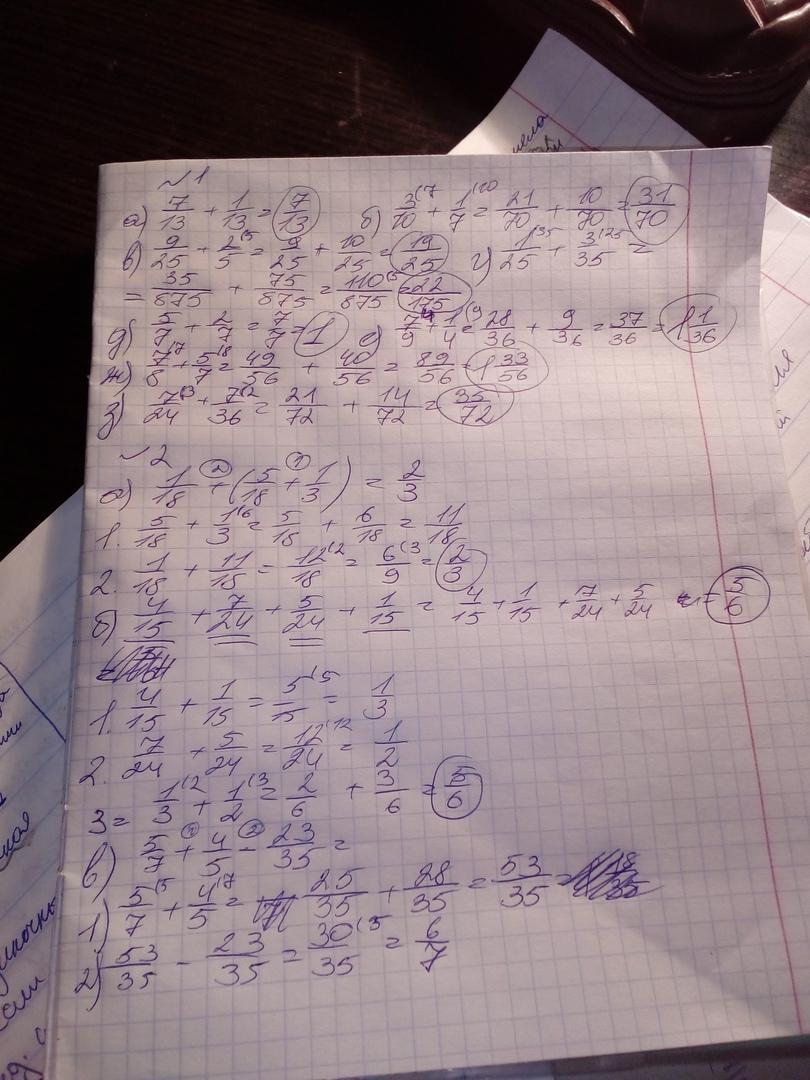 №1
а) 7/13 + 1/13 = 7/13 б) 3(7/10 + 1(10/7 = 21/70 + 10/70 = 31/70
в) 9/25 + 2(5/5 = 9/25 + 10/25 = 19/25 г) 1(35/25 + 3(25/35 =
= 35/875 + 75/875 = 110(5/875 = 22/175
д) 5/7 + 2/7 = 7/7 = 1 е) 7(4/9 + 1(9/4 = 28/36 + 9/36 = 37/36 = 1 1/36
ж) 7(7/8 + 5(8/7 = 49/56 + 40/56 = 89/56 = 1 33/56
з) 7(3/24 + 7(2/36 = 21/72 + 14/72 = 35/72
№2
а) 1/18 + (5/18 + 1/3) = 2/3
1. 5/18 + 1(6/3 = 5/18 + 6/18 = 11/18
2. 1/18 + 11/18 = 12(2/18 = 6(3/9 = 2/3
б) 4/15 + 7/24 + 5/24 + 1/15 = 4/15 + 1/15 + 7/24 + 5/24 = 5/6
1. 4/15 + 1/15 = 5(5/15 = 1/3
2. 7/24 + 5/24 = 12(12/24 = 1/2
3= 1(2/3 + 1(3/2 = 2/6 + 3/6 = 5/6
в) 5/7 + 4/5 - 23/35 =
1) 5(5/7 + 4(7/5 = 25/35 + 28/35 = 53/35 =
2) 53/35 - 23/35 = 30(5/35 = 6/7